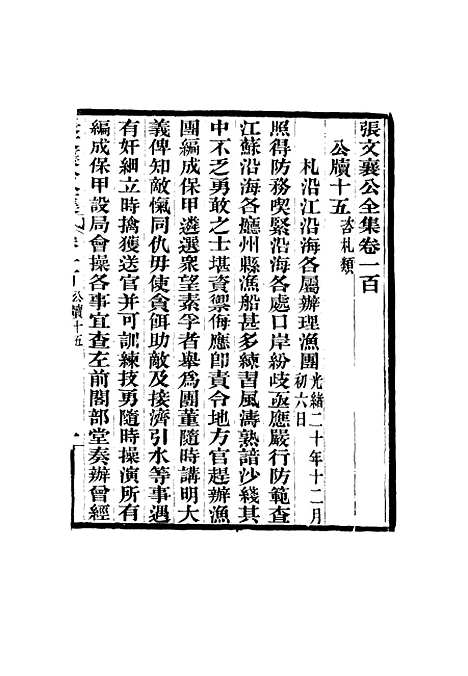 張文襄公全集卷一百
公牘十五 咨札類
札沿江沿海各屬辦理漁團 光緒二十年十二月初六日
照得防務喫緊沿海各處口岸紛歧亟應嚴行防範查
江蘇沿海各廳州縣漁船甚多練習風濤熟諳沙綫其
中不乏勇敢之士堪資禦侮應卽責令地方官趕辦漁
團編成保甲遴選衆望素孚者舉爲團董隨時講明大
義俾知敵愾同仇毋使貪餌助敵及接濟引水等事遇
有奸細立時擒獲送官并可訓練技勇隨時操演所有
編成保甲設局會操各事宜查左前閣部堂奏辦曾經
公牘十五 一